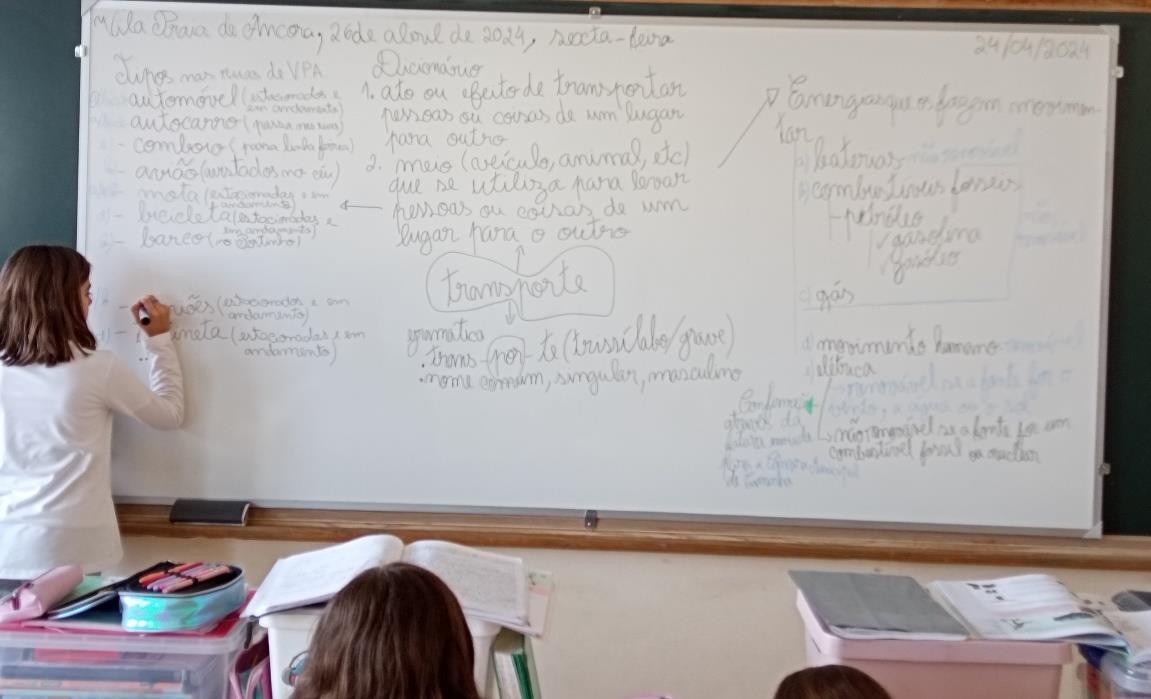 Vila Praia de Âncora, 26 de abril de 2024, sexta-feira
24/04/2024
Tipos nas ruas de VPA
automóvel (estacionados e em andamento)
autocarro (passa nas ruas)
- comboio (para linha férrea)
- avião (avistados no céu)
mota (estacionadas e em andamento)
- bicicleta (estacionadas e em andamento)
- barco (no Portinho)
(estacionados e em andamento)
(estacionadas e em andamento)
Dicionário
1. ato ou efeito de transportar
pessoas ou coisas de um lugar
para outro
2. meio (veículo, animal, etc)
que se utiliza para levar
pessoas ou coisas de um
lugar para o outro
transporte
gramática
. trans-por-te (trissílabo/grave)
. nome comum, singular, masculino
Energias que os fazem movimen-
tar
a) baterias não renovável
b) combustíveis fósseis
petróleo
gasolina
gasóleo
não
renovável
c) gás
d) movimento humano renovável
e) elétrica
renovável se a fonte for o
vento, a água ou o sol
não renovável se a fonte for um
combustível fóssil ou nuclear
através da
fatura